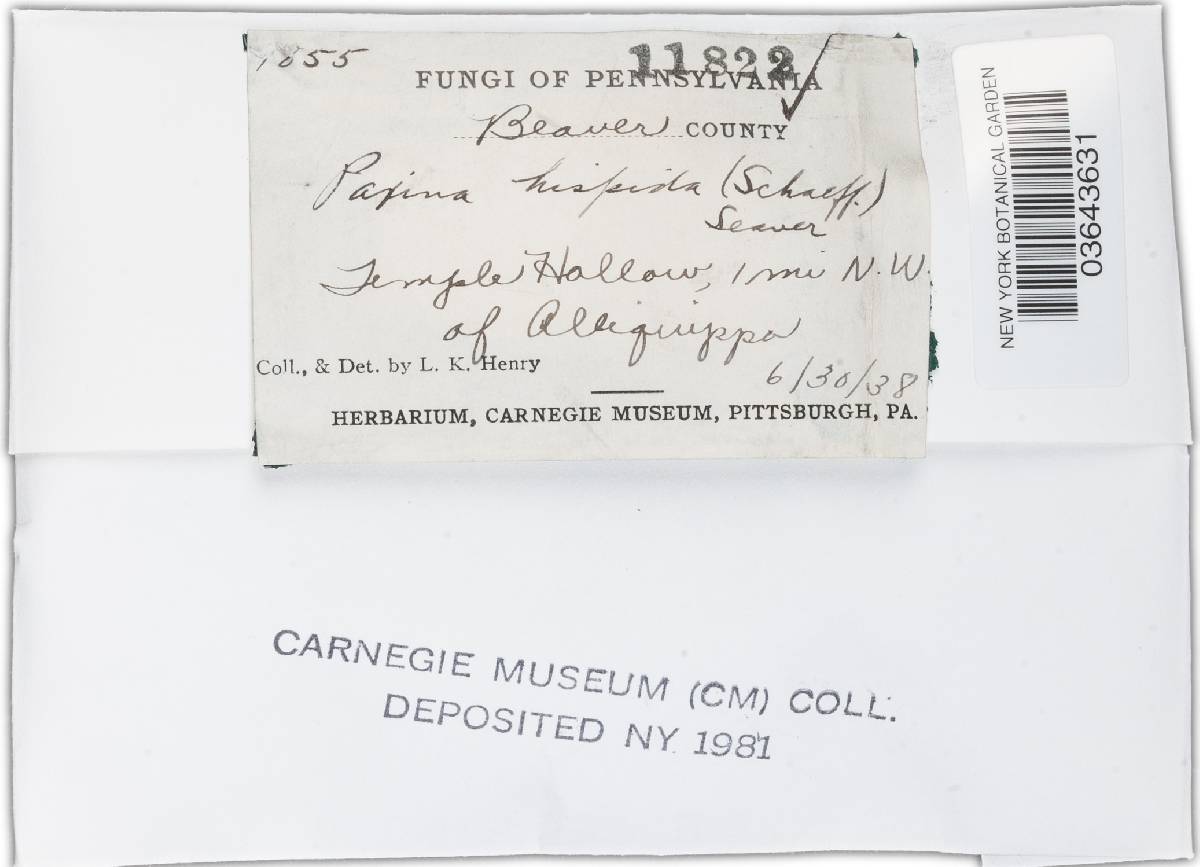 1855
11822
FUNGI OF PENNSYLVANIA
Beaver COUNTY
Paxina hispida (Schaeff.)
Seaver
Temple Hollow, 1 mi N.W.
of Aliquippa
Coll., & Det. by L. K. Henry
6/30/38
HERBARIUM, CARNEGIE MUSEUM, PITTSBURGH, PA.
NEW YORK BOTANICAL GARDEN
03643631
CARNEGIE MUSEUM (CM) COLL.
DEPOSITED NY 1981